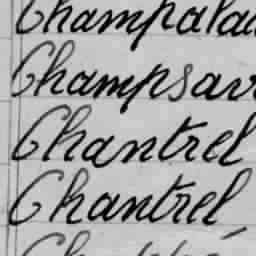 Champala
Champsav
Chantrel
Chantrel